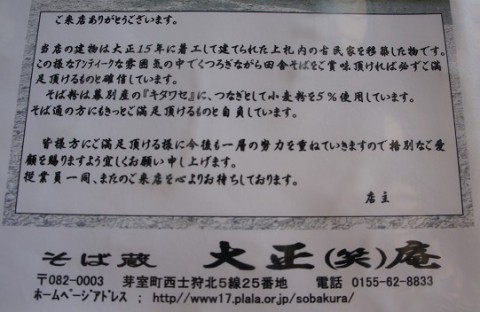 ご来店ありがとうございます。
当店の建物は大正15年に着工して建てられた上札内の古民家を移築した物です。
この様なアンティークな雰囲気の中でくつろぎながら田舎そばをご賞味頂ければ必ずご満
足頂けるものと確信しています。
そば粉は幕別産の『キタワセ』に、つなぎとして小麦粉を5%使用しています。
そば通の方にもきっとご満足頂けるものと自負しています。
皆様方にご満足頂ける様に今後も一層の努力を重ねていきますので格別なご愛
顧を賜りますよう宜しくお願い申し上げます。
従業員一同、またのご来店を心よりお待ちしております。
店主
そば蔵 大正(笑)庵
〒082-0003 芽室町西士狩北5線25番地 電話 0155-62-8833
ホームページアドレス : http//www17.plala.or.jp/sobakura/